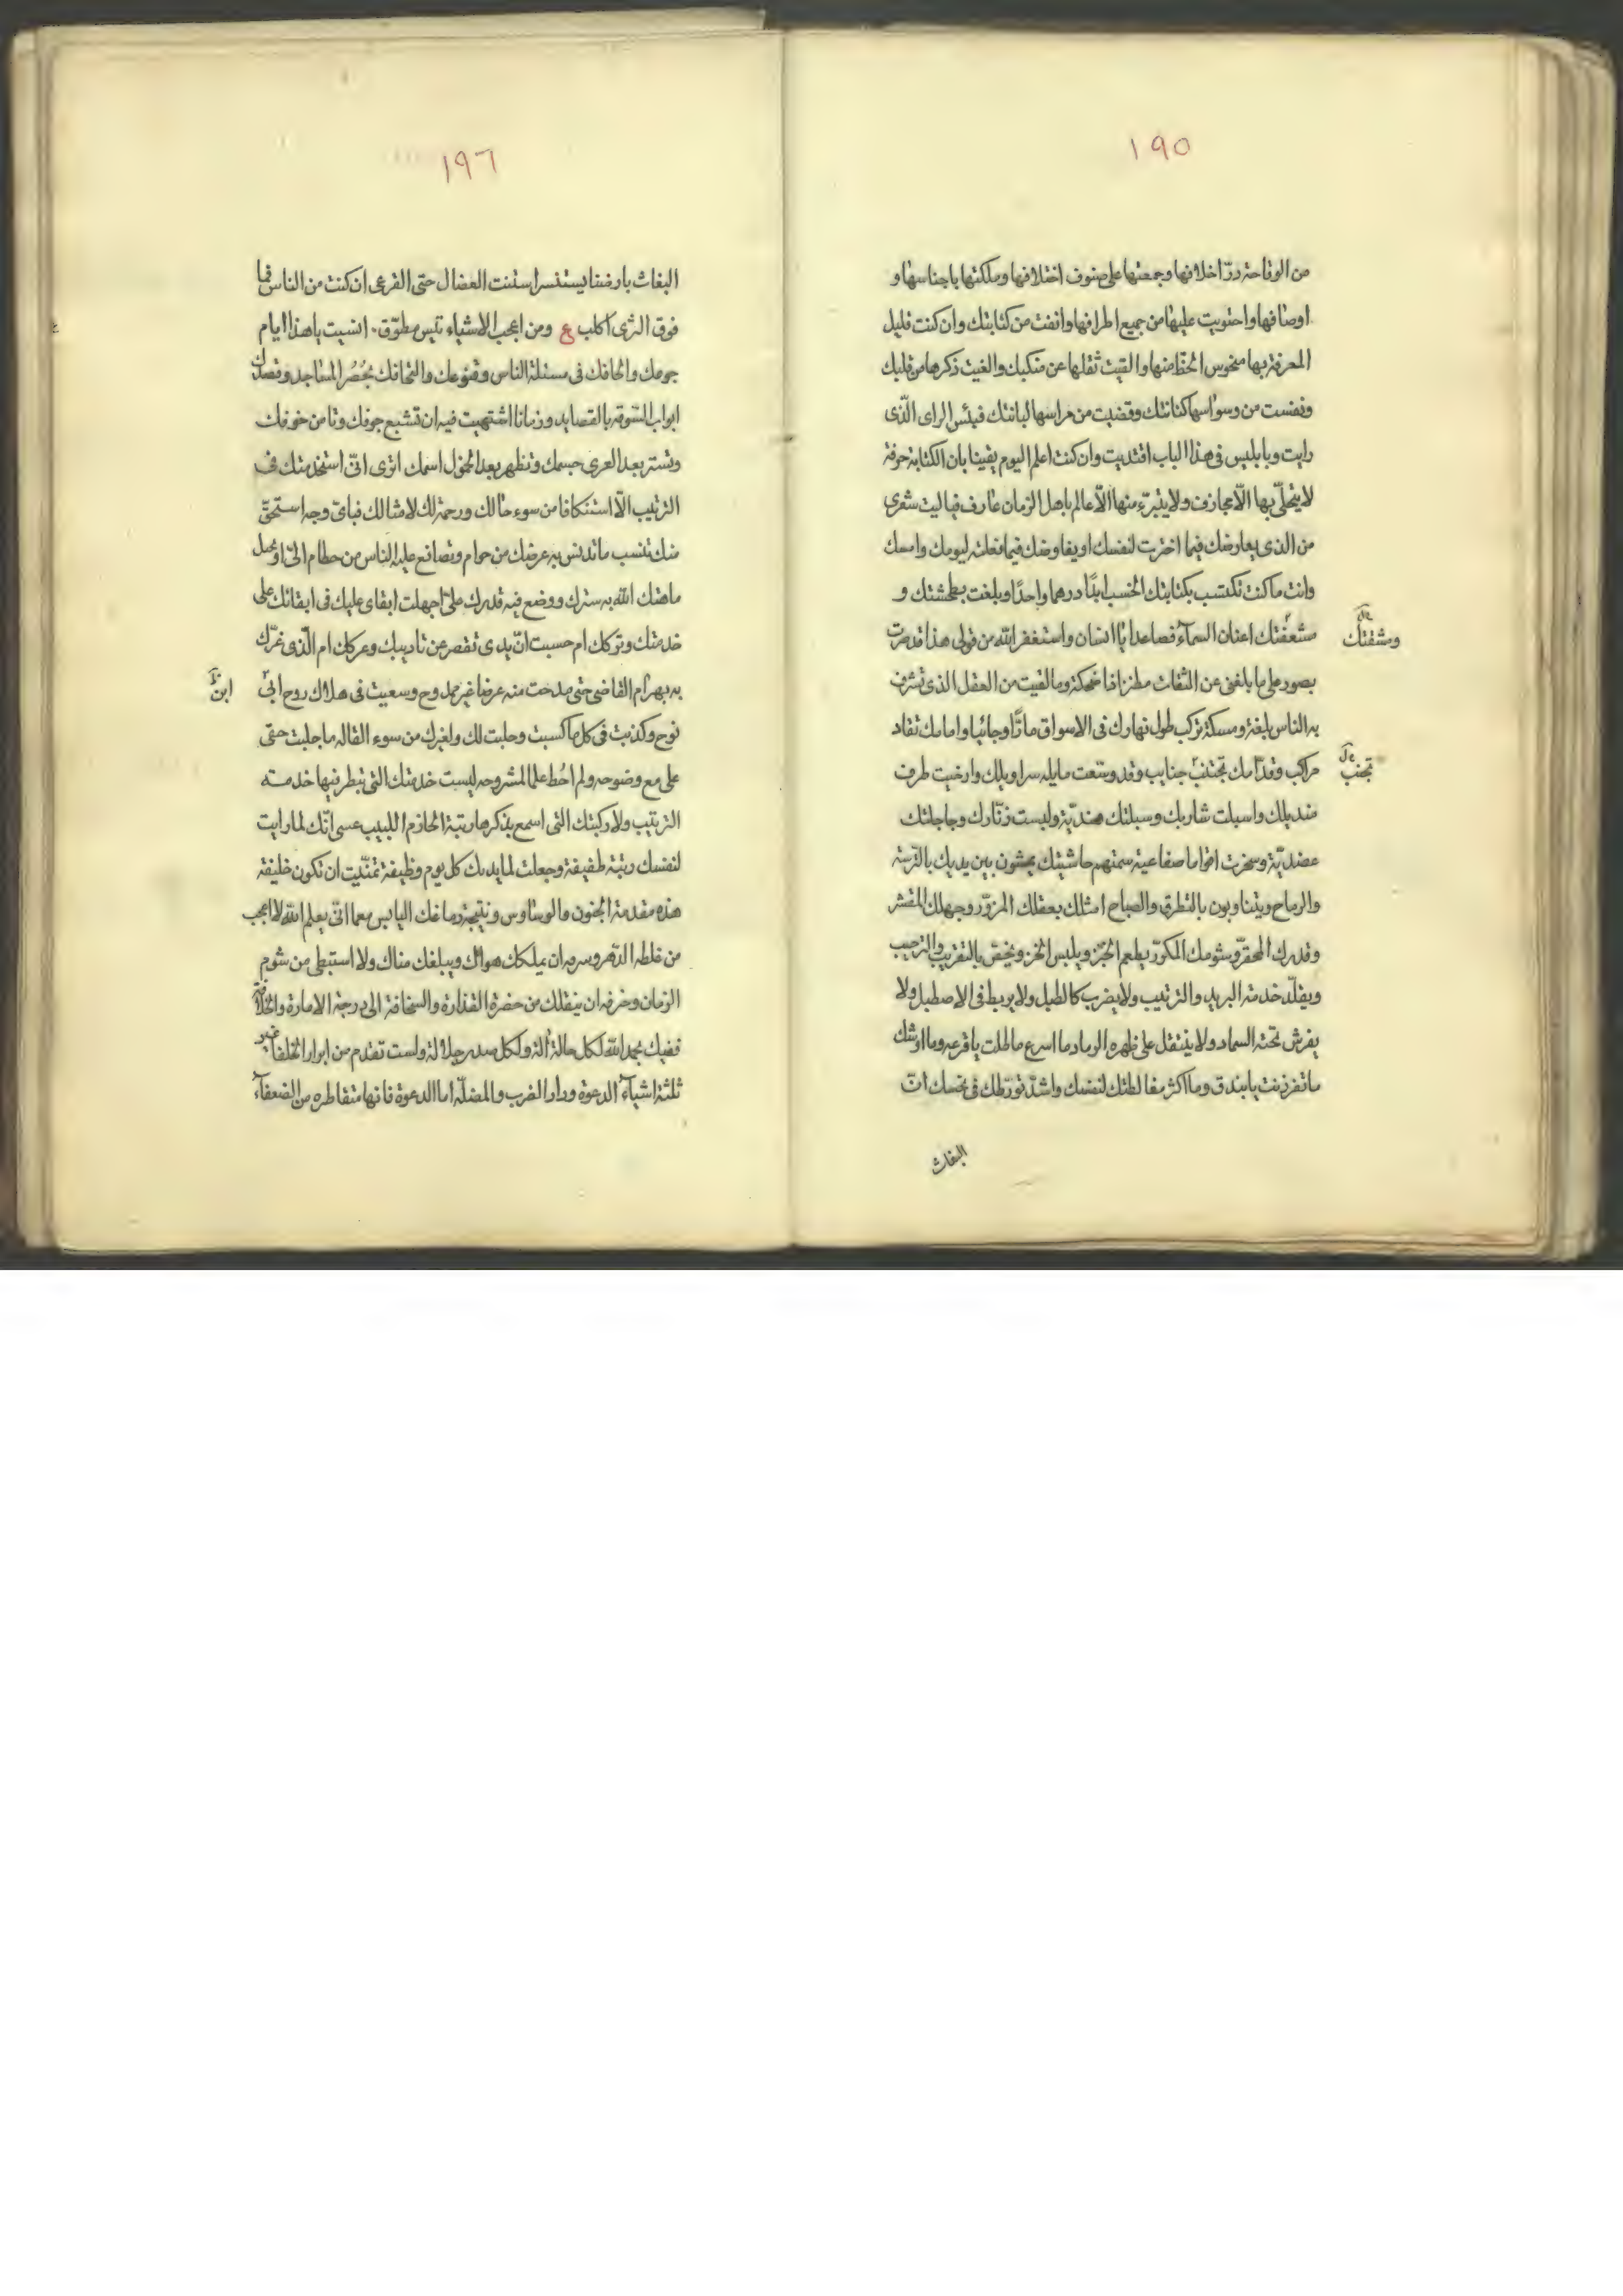 ١٩٥
من الوقاحة درّ اخلافها وجمعتها على صنوف اختلافها وملكتها باجناسها و
اوصافها واحتويت عليها من جميع اطرافها وانفت من كتابتك وان كنت قليل
المعرفة بها منحوس الحظ منها والقيت ثقلها عن منكبك والغيت ذكرها من قلبك
ونفست من وسواسها كنانتك وقضيت من مراسها لبانتك فبئس الراى الّذى
رايت وبابليس فى هذا الباب اقتديت وان كنت اعلم اليوم يقينا بان الكتابة حرفة
لا يتحلّى بها الّا مجازف ولا يتبرّء منها الّا عالم باهل الزمان عارف فيا ليت شعرى
من الذى يعارضك فيما اخترت لنفسك او يفاوضك فيما فعلته ليومك وامسك
وانت ما كنت تكتسب بكتابتك الخسب ابدًا درهما واحدًا وبلغت بطشتك و
شعفتك اعنان السمآء فصاعدا يا انسان واستغفر الله من قولى هذا قد صرت
وشفتك
بصور على ما بلغنى عن الثقات مطنزا ضحكة وما لقيت من العقل الذى تشرف
به الناس بلغة ومسكة تركب طول نهارك فى الاسواق مارًّا وجائيا وامامك تقاد
مراكب وقدّامك تجتنب جنايب وقد وسّعت مايله سراويلك وارخيت طرف
تجنب
منديلك واسبلت شاربك وسبلتك هنديّة ولبست زنّارك وجاجلتك
عضديّة وسخرت اقواما صفاعية سمتهم حاشيتك يمشون بين يديك بالترسة
والرماح ويتناوبون بالتطرق والصياح امثلك بعقلك المزوّر وجهلك المقشر
وقدرك المحقّر وشومك المكوّر يطعم الخبز ويلبس الخز ويختص بالتقريب والترحيب
ويقلّد خدمة البريد والترتيب ولا يضرب كالطبل ولا يربط فى الاصطبل ولا
يفرش تحته السماد ولا ينتقل على ظهره الرماد ما اسرع ما طلت يا قرعه وما اوشك
ما تفرزنت يا بندق وما اكثر مغالطتك لنفسك واشدّ تورّطك فى نحسك انّ
البغاث
١٩٦
البغاث بارضنا يستنسر استنت الفصال حتى القرعى ان كنت من الناس فما
فوق الثرى اكلب ع ومن اعجب الاشياء تيس مطوّق انسيت يا هذا ايام
جوعك والحافك فى مسئلة الناس وقنوعك والتحافك بحُصُر المساجد وقصدك
ابواب السّوقه بالقصايد وزمانا اشتهيت فيه ان تشبع جوفك وتامن خوفك
وتستر بعد العرى جسمك وتظهر بعد الخمول اسمك اترى انّى استخدمتك فى
الترتيب الّا استنكافا من سوء حالك ورحمة لك لامثالك فباىّ وجه استحقّ
منك تنسب ما تدنس به عرضك من حرام وتصانع عليه الناس من حطام الىّ او تحيل
ما هتك الله به سترك ووضع فيه قدرك علىّ اجهلت ابقاى عليك فى ابقائك على
خدمتك وتركك ام حسبت انّ يدى تقصر عن تاديبك وعركك ام الّذى غرّك
به بهرام القاضى حتى مدحت منه عرضا غير ممدوح وسعيت فى هلاك روح ابى
ابن
نوح وكذبت فى كل ما كسبت وحلبت لك ولغيرك من سوء القاله ما جلبت حتى
على مع وضوحه ولم احُط علما لمشروحه ليست خدمتك التى تبطر فيها خدمته
الترتيب ولا ركبتك التى اسمع بذكرها رتبة الحازم اللبيب عسى انّك لما رايت
لنفسك رتبة طفيفة وجعلت لما يديك كل يوم وظيفة تمنّيت ان تكون خليفة
هذه مقدمة الجنون مالوساوس ونتيجة دماغك اليابس معما انّى يعلم الله لا اعجب
من غلطه الدهر وسروره ان يملكك هواك ويبلغك مناك ولا استبطى من شوم
الزمان وخرفه ان ينقلك من حضرة القذارة والسخافة الى درجة الامارة والخلافة
ففيك بحمد الله لكل حالة آلة ولكل صدر جلالة ولست تقدم من ابوار الخلفا غير
ثلثة اشيآء الدعوة ودار الضرب والمضلّه اما الدعوة فانها متقاطره من الضعفآء